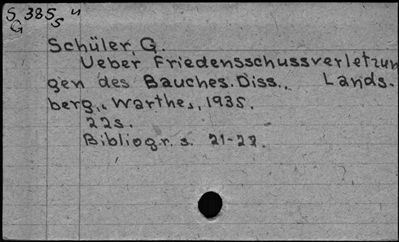 S 385 u
G S
Schüler, G.
Ueber Friedensschussverletzun
gen des Bauches. Diss., Lands-
berg, Warthe, 1935.
22s.
Bibliogr. s. 21-22.